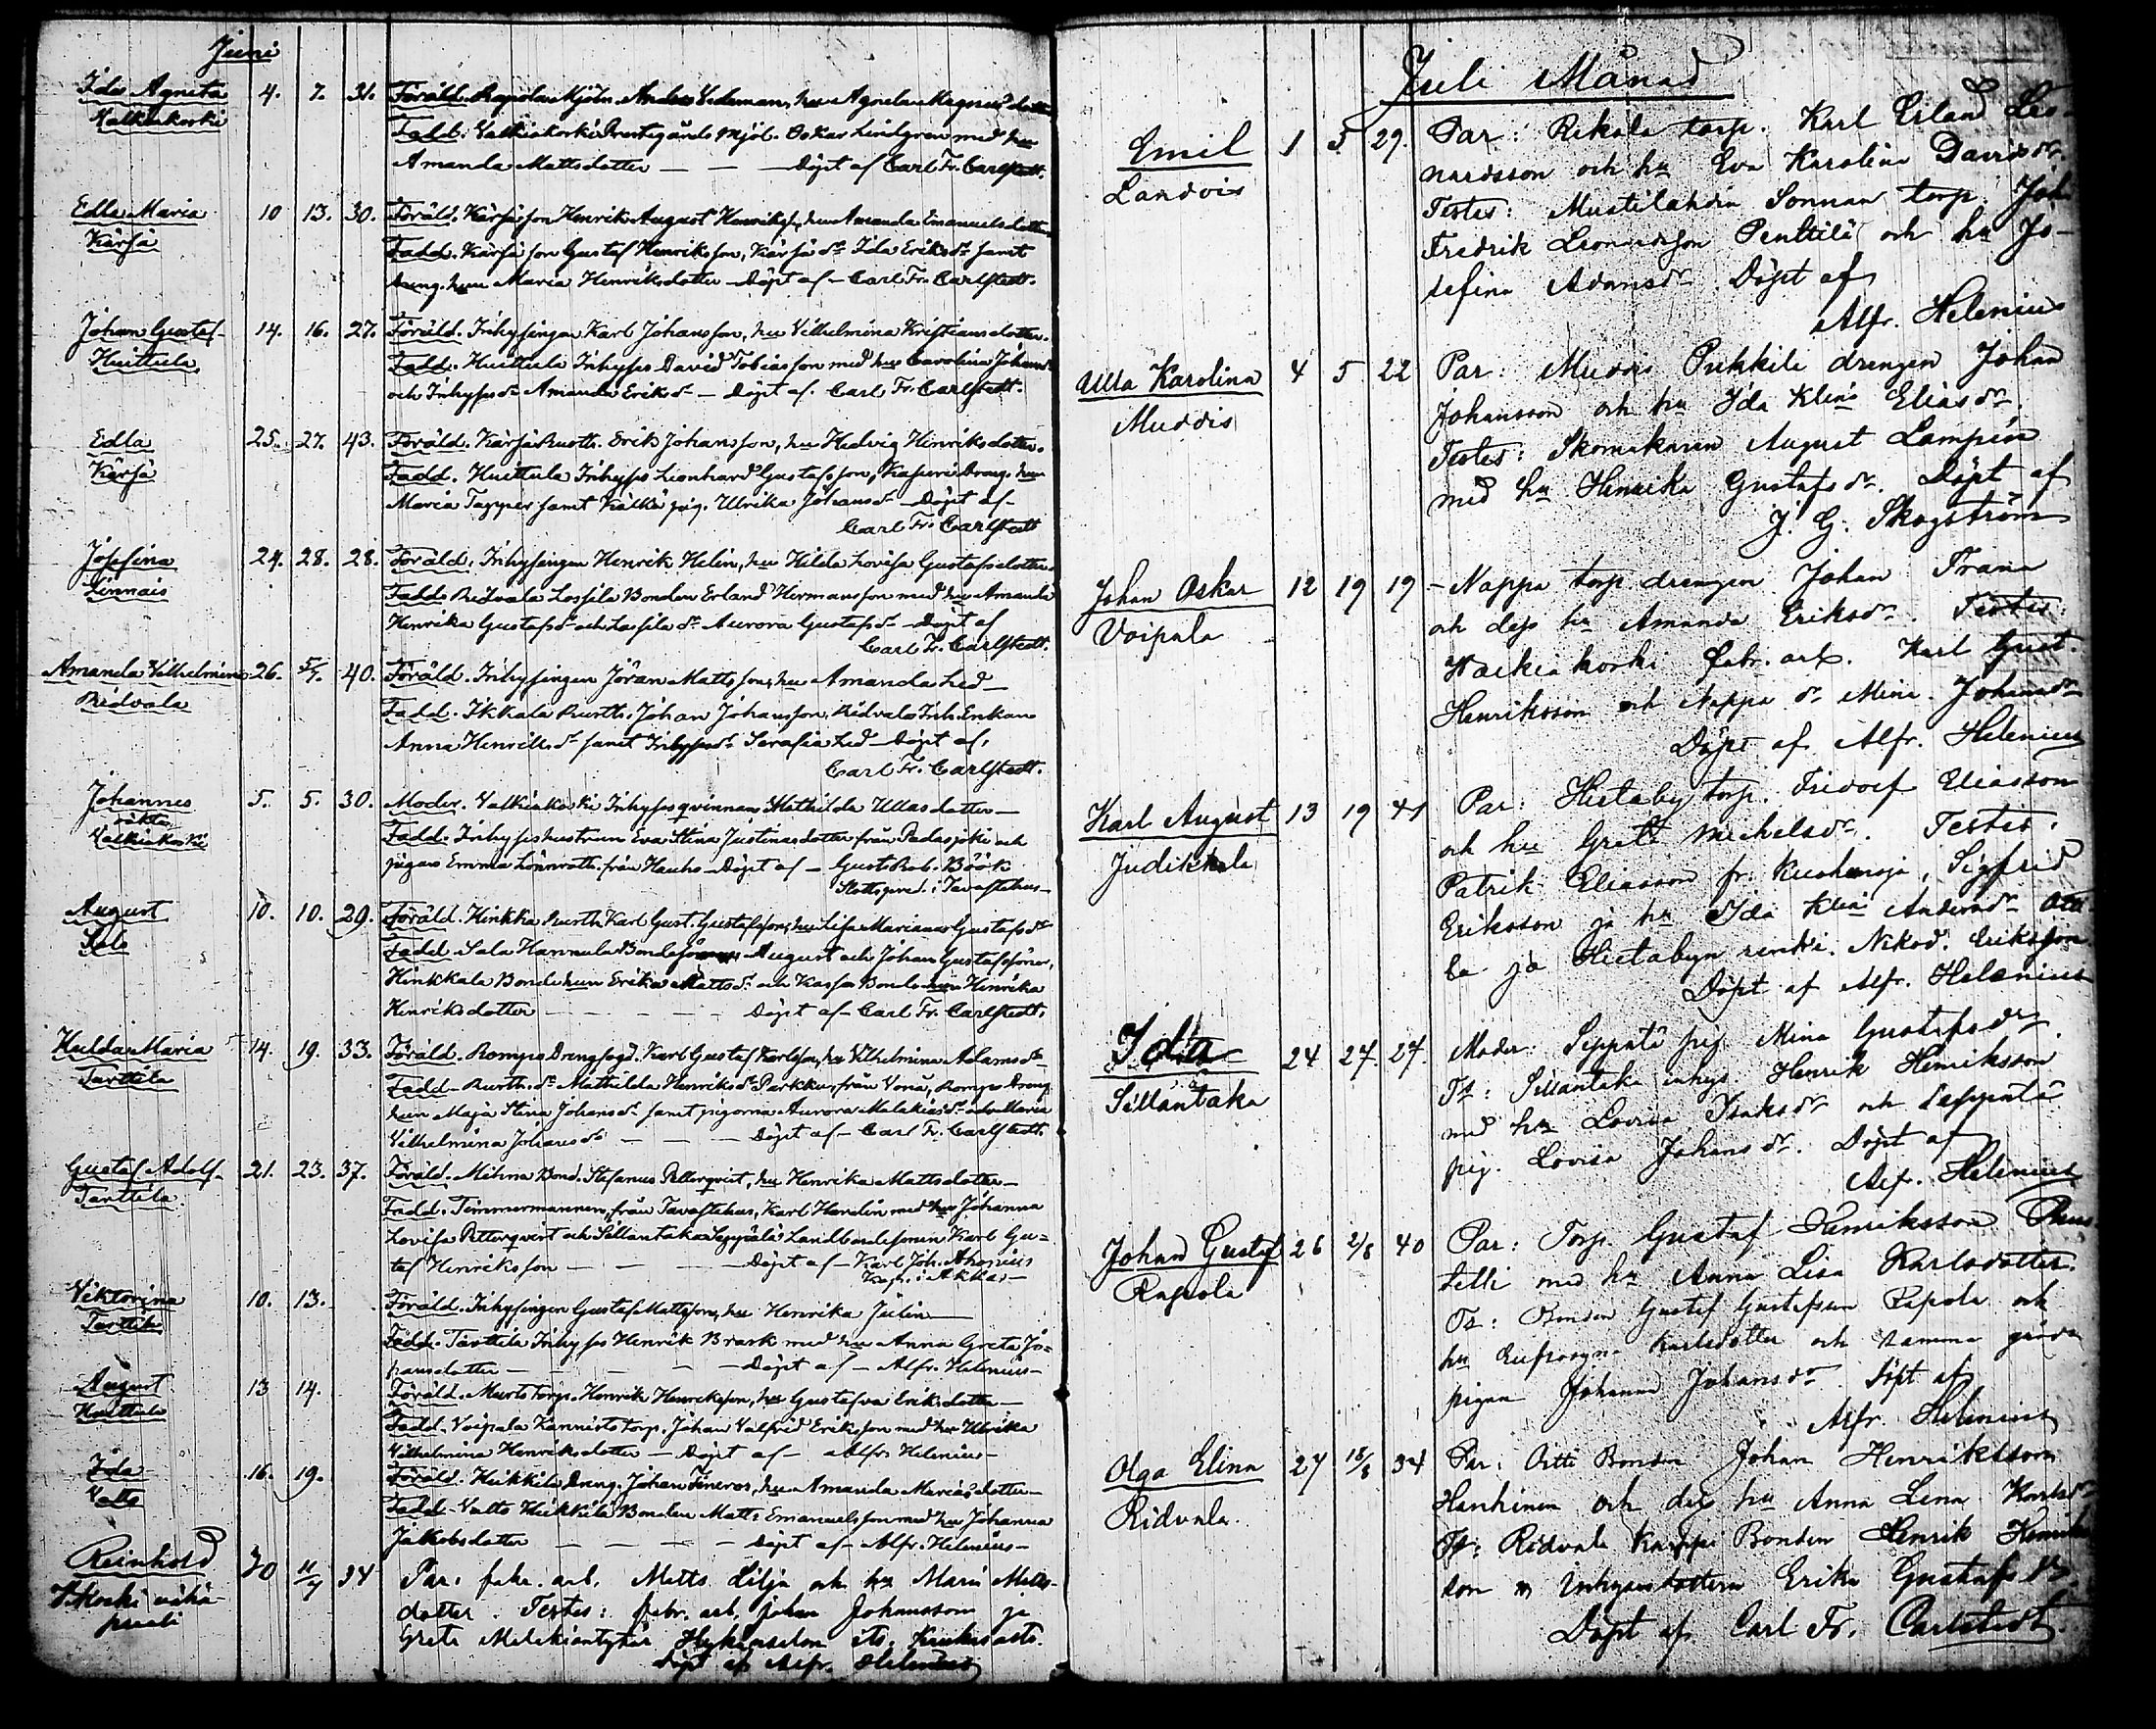 Juni
Ida Agneta 4. 7. 31. Föräld. Rapola Mjöln. Anders Videman, hu Agneta Magnusdotter
Valkiakoski Fadd. Valkiakoski Prestgårds Mjöl. Oskar Lindgren med hu
Amanda Mattsdotter — — Döpt af Carl Fr. Carlstedt.
Edla Maria 10 13. 30. Föräld. Kärjä son Henrik August Henriksson, hu Amanda Emanuelsdotter
Kärjä Fadd. Kärjä son Gustaf Henriksson, Kärjä dr Ida Eriksdr samt
dreng. hun Maria Henriksdotter — Döpt af — Carl Fr. Carlstedt.
Johan Gustaf 14. 16. 27. Föräld. Inhysingen Karl Johansson, hu Vilhelmina Kristiansdotter.
Huittula Fadd. Huittula Inhyses David Tobiasson med hu Carolina Johansdr
och Inhysesdr Amanda Eriksdr — Döpt af. Carl Fr. Carlstedt.
Edla 25. 27. 43. Föräld. Kärjä Rusth. Erik Johansson, hu Hedvig Hinriksdotter.
Kärjä Fadd. Huittula Inhyses Lionhard Gustafsson, Drengs hun
Maria Tapper samt pig. Ulrika Johansdr — Döpt af —
Carl Fr. Carlstedt
Josefina 24. 28. 28. Föräld. Inhysingen Henrik Helin, hu Hilda Lovisa Gustafsdotter.
Linnais Fadd. Ridvala Lossila Bonden Erland Hermansson med hu Amanda
Henrika Gustafsdr och Lassila dr Aurora Gustafsdr — Döpt af
Carl Fr. Carlstedt.
Amanda Vilhelmina 26. 5/7. 40. Föräld. Inhysingen Jöran Mattsson, hu Amanda Lid —
Ridvala Fadd. Ikkala Rusth. Johan Johansson, Ridvala Inh. Enkan
Anna Henriksdr samt Inhysesdr Serafia Lid — Döpt af,
Carl Fr. Carlstedt.
Johannes 5. 5. 30. Moder. Valkiakoski Inhyses qvinnan Mathilda Ullasdotter —
oäkta
Valkiakoski Fadd. Inhyseshustrun Eva Stina Justinasdotter från Padasjoki och
pigan Emma Lönnroth från Hauho — Döpt af — Gust. Rob. Böök
Slottspred. i Tavastehus —
August 10. 10. 29. Föräld. Hinkka Rusth. Karl Gust. Gustafsson, hu Lisa Mariana Gustafsdr
Sala Fadd. Sala Hannula Bondesöner, August och Johan Gustafssöner,
Hinkkala Bondehun Erika Mattsdr och Kassa Bondehun Hinrika
Henriksdotter — — — Döpt af — Carl Fr. Carlstedt.
Hulda Maria 14. 19. 33. Föräld. Rompo Drengfogd. Karl Gustaf Karlsson, hu Vilhelmina Adamsdr
Tarttila Fadd — Rusth. dr Mathilda Henriksdr Parkku, från Vonå, Rompo Dreng
hun Maja Stina Johansdr samt pigorna Aurora Malakiasdr och Maria
Vilhelmina Johansdr — — Döpt af — Carl Fr. Carlstedt.
Gustaf Adolf 21. 23. 37. Föräld. Mikma Bond. Stefanus Petterqvist, hu Henrika Mattsdotter —
Tarttila Fadd. Timmermannen, från Tavastehus, Karl Handin med hu Johanna
Lovisa Petterqvist och Sillantaka Seppälä Landbondesonen Karl Gu=
taf Henriksson — — Döpt af — Karl Joh. Ahonius
Kapl. i Akkas —
Viktorina 10. 13. Föräld. Inhysingen Gustaf Mattsson, hu Henrika Julin —
Tarttila Fadd. Tarttila Inhyses Henrik Brask med hu Anna Greta Jo=
hansdotter — — — Döpt af — Alfr. Helenius —
August 13 14. Föräld. Musto torp. Henrik Henriksson, hu Gustafva Eriksdotter —
Huittula Fadd. Voipala Kannisto torp. Johan Valfrid Eriksson med hu Ulrika
Vilhelmina Henriksdotter — Döpt af — Alfr. Helenius —
Ida 16. 19. Föräld. Heikkilä Dreng. Johan Fineros, hu Amanda Mariasdotter —
Valto Fadd — Valto Heikkilä Bonden Matts Emanuelsson med hu Johanna
Jakobsdotter — — — Döpt af — Alfr. Helenius —
Reinhold 30 11/7 24 Par: fabr. arb. Matts Lilja och hu Maria Matts-
V:koski dotter. Testes: fabr. arb. Johan Johansson ja
Greta
Döpt af Alfr. Helenius
Juli Månad
Emil 1 5 29. Par: Rikala torp. Karl Erland Leo-
Landvis nardsson och hu Eva Karolina Davidsdr.
Testes: Mustilahdin Sonnan torp. Joh
Fredrik Leonardsson Penttilä och hu Jo-
sefina Adamsdr. Döpt af
Alfr. Helenius
Ulla Karolina 4 5 22 Par: Muddis Pukkila drengen Johan
Muddis Johansson och hu Ida Klina Eliasdr.
Testes: Skomakaren August Lampén
med hu Henrika Gustafsdr. Döpt af
J. G. Skogström
Johan Oskar 12 19 19 — Nappa torp. drengen Johan Frans
Voipala och dess hu Amanda Eriksdr. Testes:
Walkiakoski fabr. arb. Karl Gust.
Henriksson och Nappa dr Mina Johansdr
Döpt af Alfr. Helenius
Karl August 13 19 41 Par: Hietaby torp. Fridolf Eliasson
Judikkala och hu Greta Michelsdr. Testes:
Patrik Eliasson fr. , Sigfrid
Eriksson ja hu Ida Klina Andersdr
la ja Hietabyn renki. Nikod. Eriksson
Döpt af Alfr. Helenius
Ida 24 27. 27. Moder: Seppälä pig. Mina Gustafsdr.
Sillantaka Ts: Sillantaka inhys. Henrik Henriksson
med hu Lovisa Isaksdr och Seppälä
pig. Lovisa Johansdr. Döpt af
Alf. Helenius
Johan Gustaf 26 2/8 40 Par: Torp. Gustaf Henriksson
Rapola med hu Anna Lisa Karlsdotter.
Ts: Bonden Gustaf Gustafsson Rapola och
hu Eufrosyna Karlsdotter och samma gårds
pigan Johanna Johansdr. Döpt af
Alfr. Helenius
Olga Elina 27 18/8 34 Par: Ortti Bonden Johan Henriksson
Ridvala. Hankinen och dess hu Anna Lena Karlsdr
Ts: Ridvala Karppi Bonden Henrik Henriks
son Erika Gustafsdr.
Döpt af Carl Fr. Carlstedt.